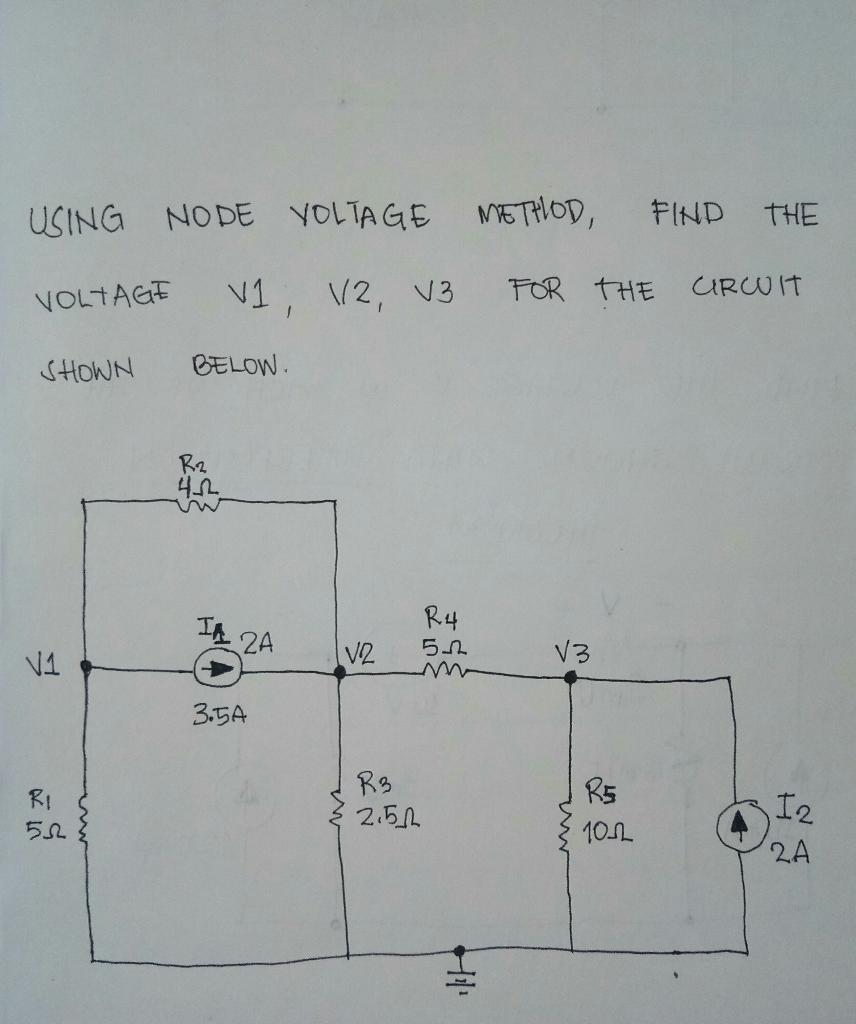 USING NODE VOLTAGE METHOD, FIND THE
VOLTAGE V1, V2, V3 FOR THE CIRCUIT
SHOWN BELOW.
R2
4Ω
I1 2A
3.5A
V1
V2
R4
5Ω
V3
R1
5Ω
R3
2.5Ω
R5
10Ω
I2
2A